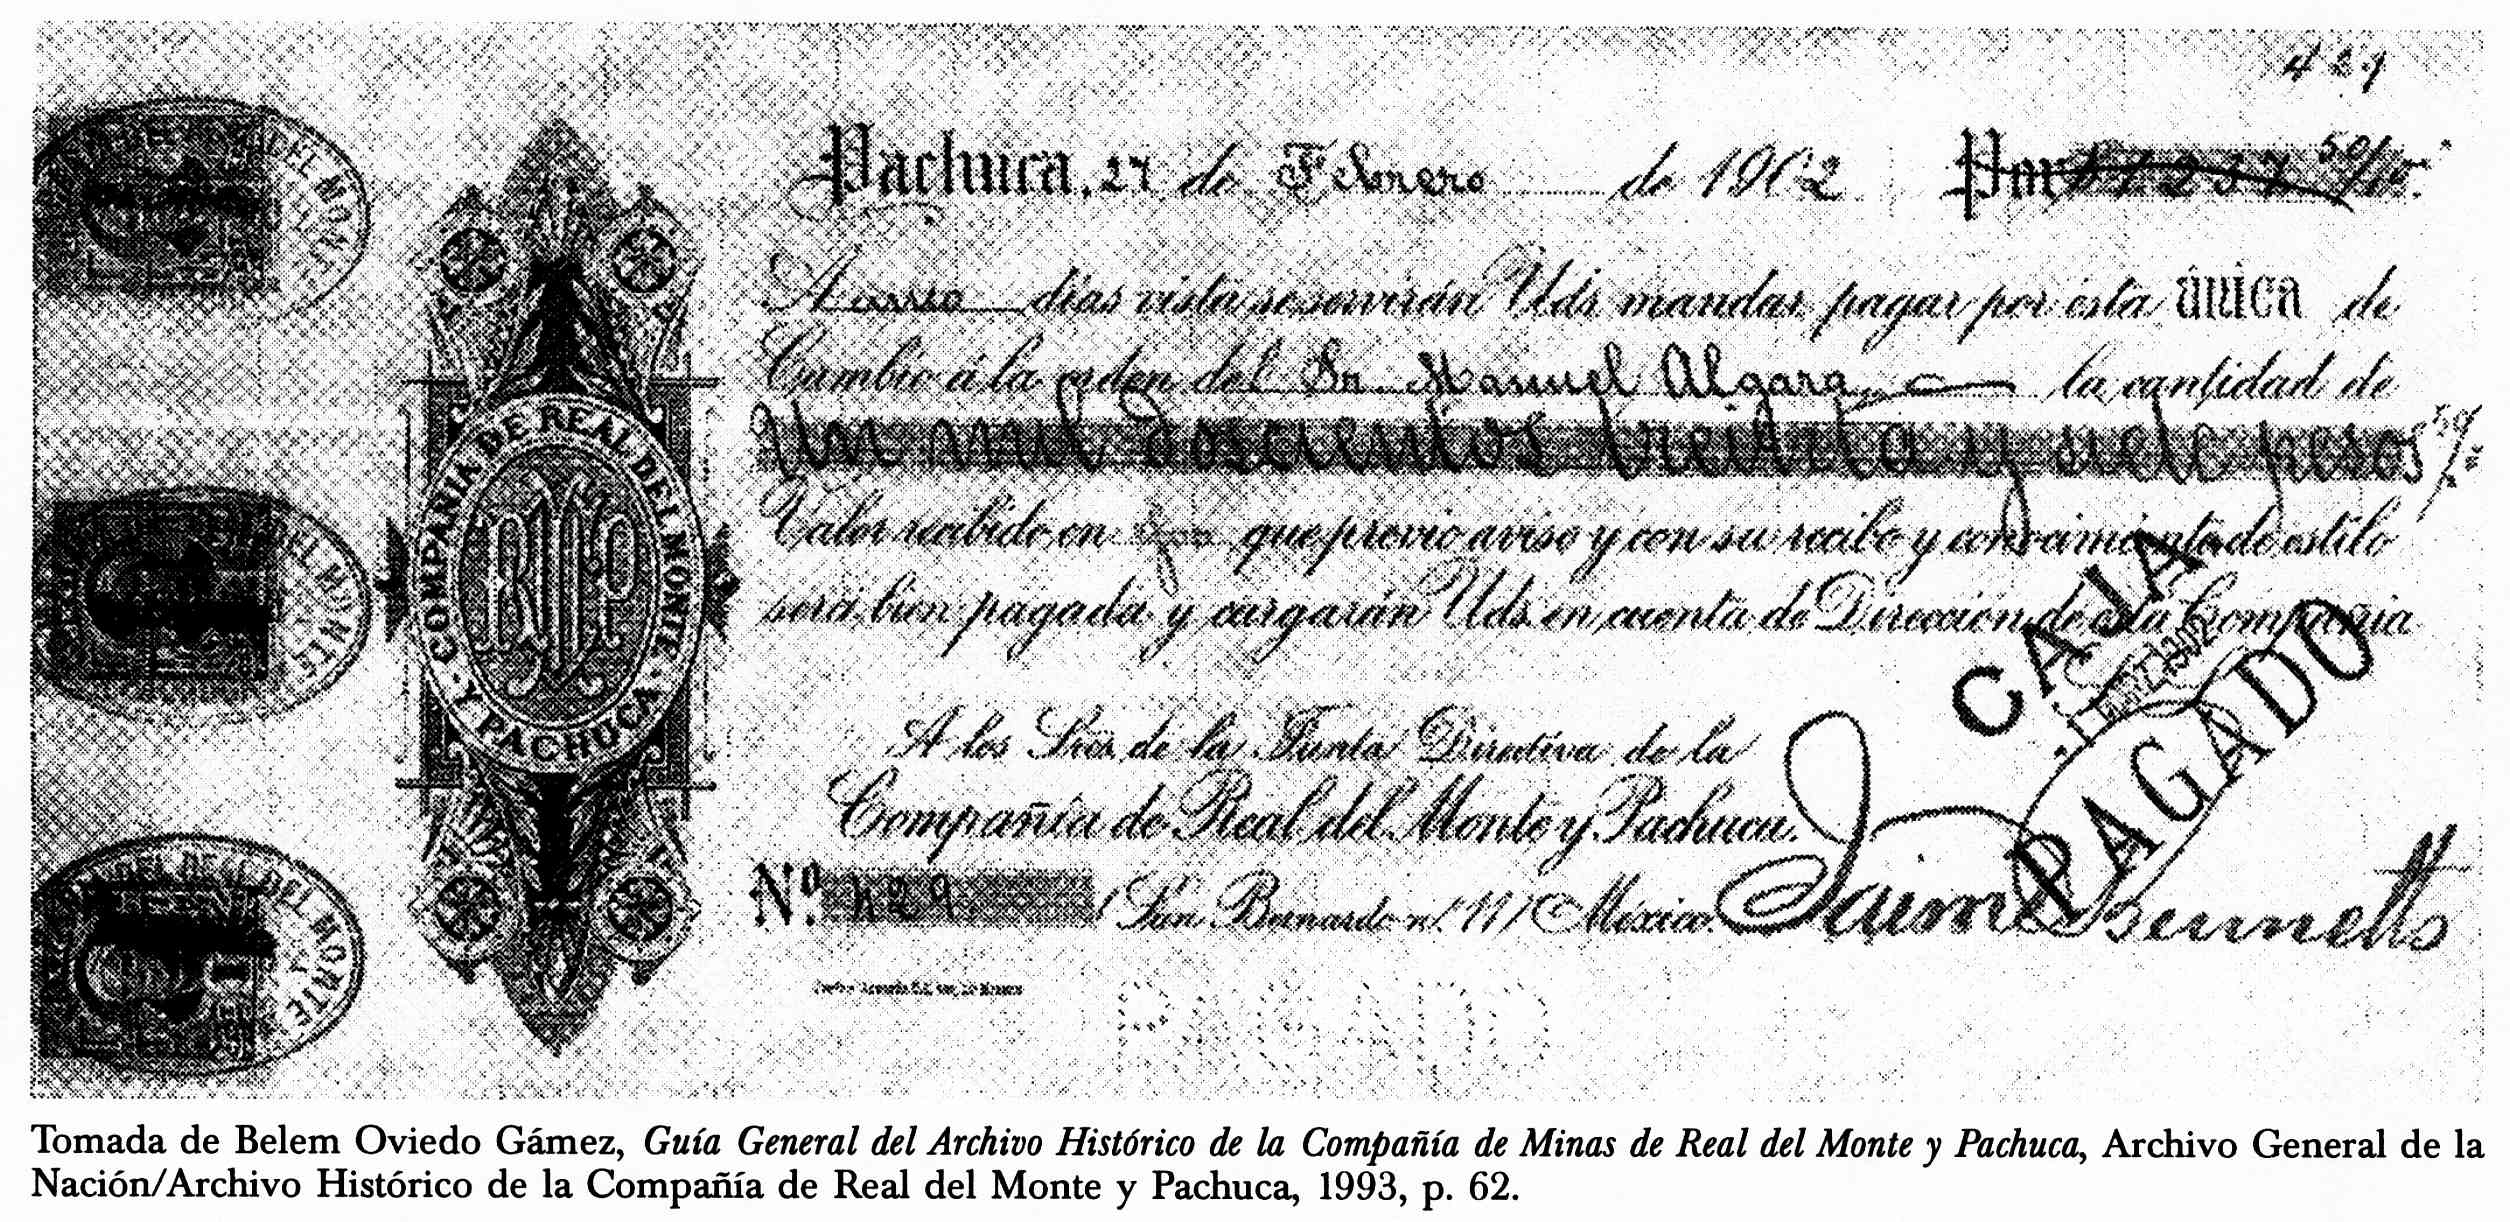 429
Pachuca, 27 de Febrero de 1902 Por $1237 50/100.
A cinco días vista se servirán Uds. mandar pagar por esta única de
Cambio á la orden del Sr. Manuel Algara la cantidad de
Un mil doscientos treinta y siete pesos 50/
Valor recibido en que previo aviso y con su recibo y conocimiento de estilo
será bien pagada y cargarán Uds. en cuenta de Dirección de esta Compañía
A los Sres. de la Junta Directiva de la
Compañía de Real del Monte y Pachuca.
Nº 429 San Bernardo nº 11 México.
Jaime Bennetts
CAJA
1902
PAGADO
PAGADO
COMPAÑIA DE REAL DEL MONTE
Y PACHUCA
RMP
DEL MONTE
DEL MONTE
REAL DEL MONTE
Tomada de Belem Oviedo Gámez, Guía General del Archivo Histórico de la Compañía de Minas de Real del Monte y Pachuca, Archivo General de la
Nación/Archivo Histórico de la Compañía de Real del Monte y Pachuca, 1993, p. 62.